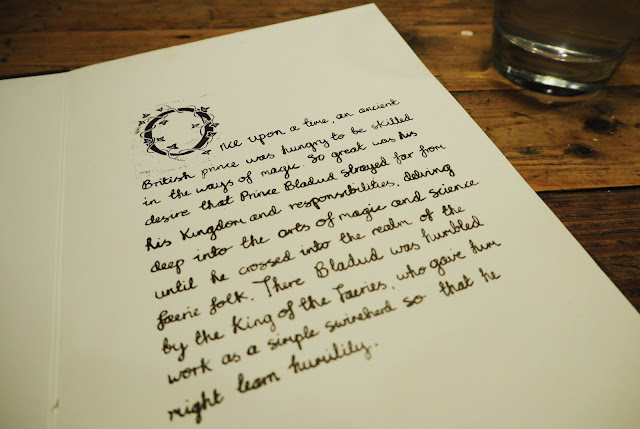 Once upon a time, an ancient
British prince was hungry to be skilled
in the ways of magic. So great was his
desire that Prince Bladud strayed far from
his Kingdom and responsibilities, delving
deep into the arts of magic and science
until he crossed into the realm of the
faerie folk. There Bladud was humbled
by the King of the Faeries, who gave him
work as a simple swineherd so that he
might learn humility.